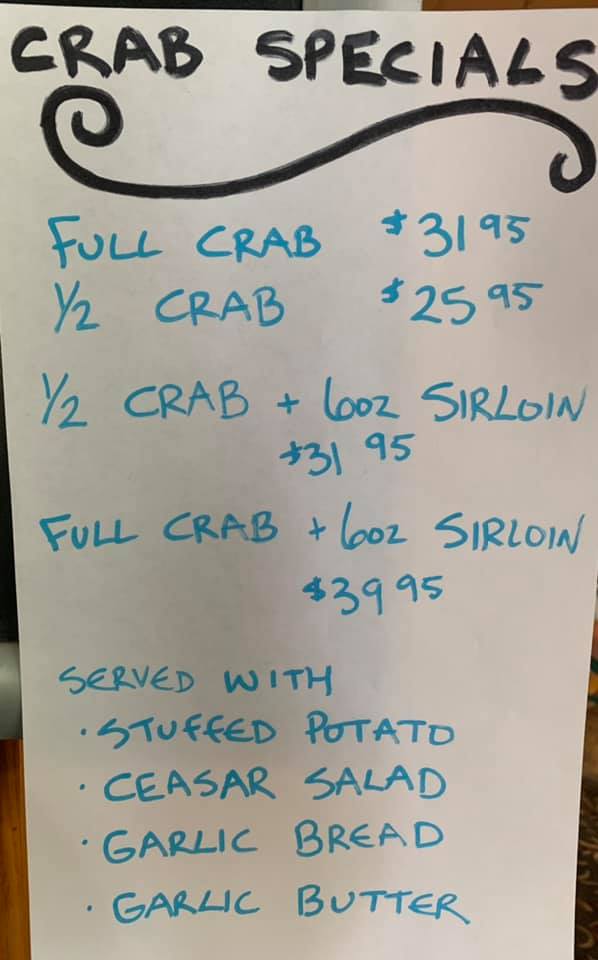 CRAB SPECIALS
FULL CRAB $31 95
1/2 CRAB $25 95
1/2 CRAB + 6oz SIRLOIN
$31 95
FULL CRAB + 6oz SIRLOIN
$39 95
SERVED WITH
· STUFFED POTATO
· CEASAR SALAD
· GARLIC BREAD
· GARLIC BUTTER